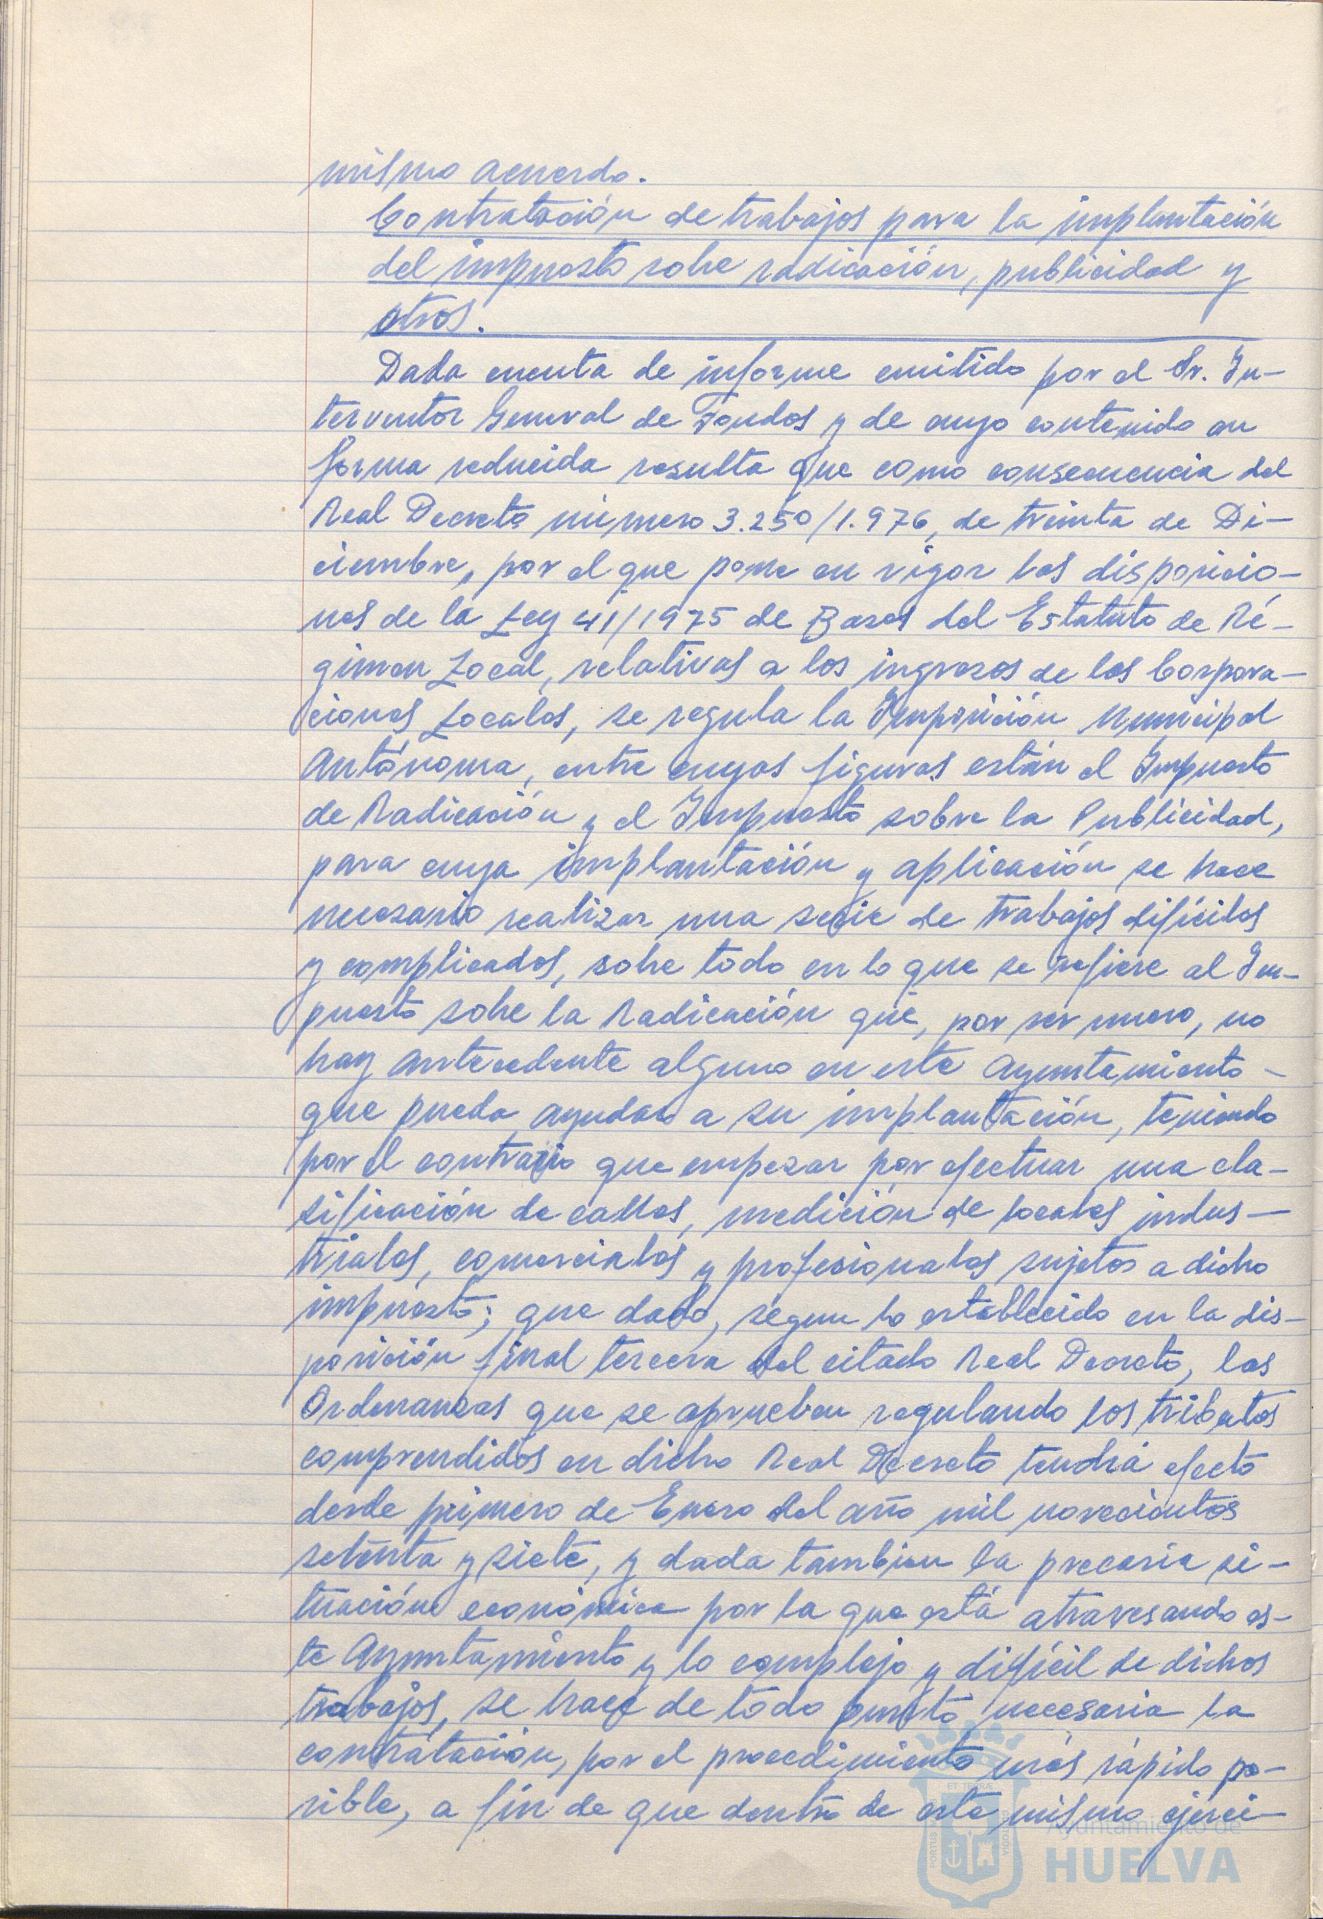 mismo acuerdo.
Contratación de trabajos para la implantación
del impuesto sobre radicación, publicidad y
otros.
Dada cuenta de informe emitido por el Sr. In-
terventor General de Fondos y de cuyo contenido en
forma reducida resulta que como consecuencia del
Real Decreto número 3.250/1.976, de treinta de Di-
ciembre, por el que pone en vigor las disposicio-
nes de la Ley 41/1975 de Bases del Estatuto de Ré-
gimen Local, relativas a los ingresos de las Corpora-
ciones Locales, se regula la Imposición Municipal
Autónoma, entre cuyas figuras están el Impuesto
de Radicación y el Impuesto sobre la Publicidad,
para cuya implantación y aplicación se hace
necesario realizar una serie de trabajos difíciles
y complicados, sobre todo en lo que se refiere al Im-
puesto sobre la Radicación que, por ser nuevo, no
hay antecedente alguno en este Ayuntamiento -
que pueda ayudar a su implantación, teniendo
por el contrario que empezar por efectuar una cla-
sificación de calles, medición de locales indus-
triales, comerciales y profesionales sujetos a dicho
impuesto; que dado, segun lo establecido en la dis-
posición final tercera del citado Real Decreto, las
Ordenanzas que se aprueben regulando los tributos
comprendidos en dicho Real Decreto tendrá efecto
desde primero de Enero del año mil novecientos
setenta y siete, y dada tambien la precaria si-
tuación económica por la que está atravesando es-
te Ayuntamiento y lo complejo y difícil de dichos
trabajos, se hace de todo punto necesaria la
contratación, por el procedimiento más rápido po-
sible, a fin de que dentro de este mismo ejerci-
Ayuntamiento de
HUELVA